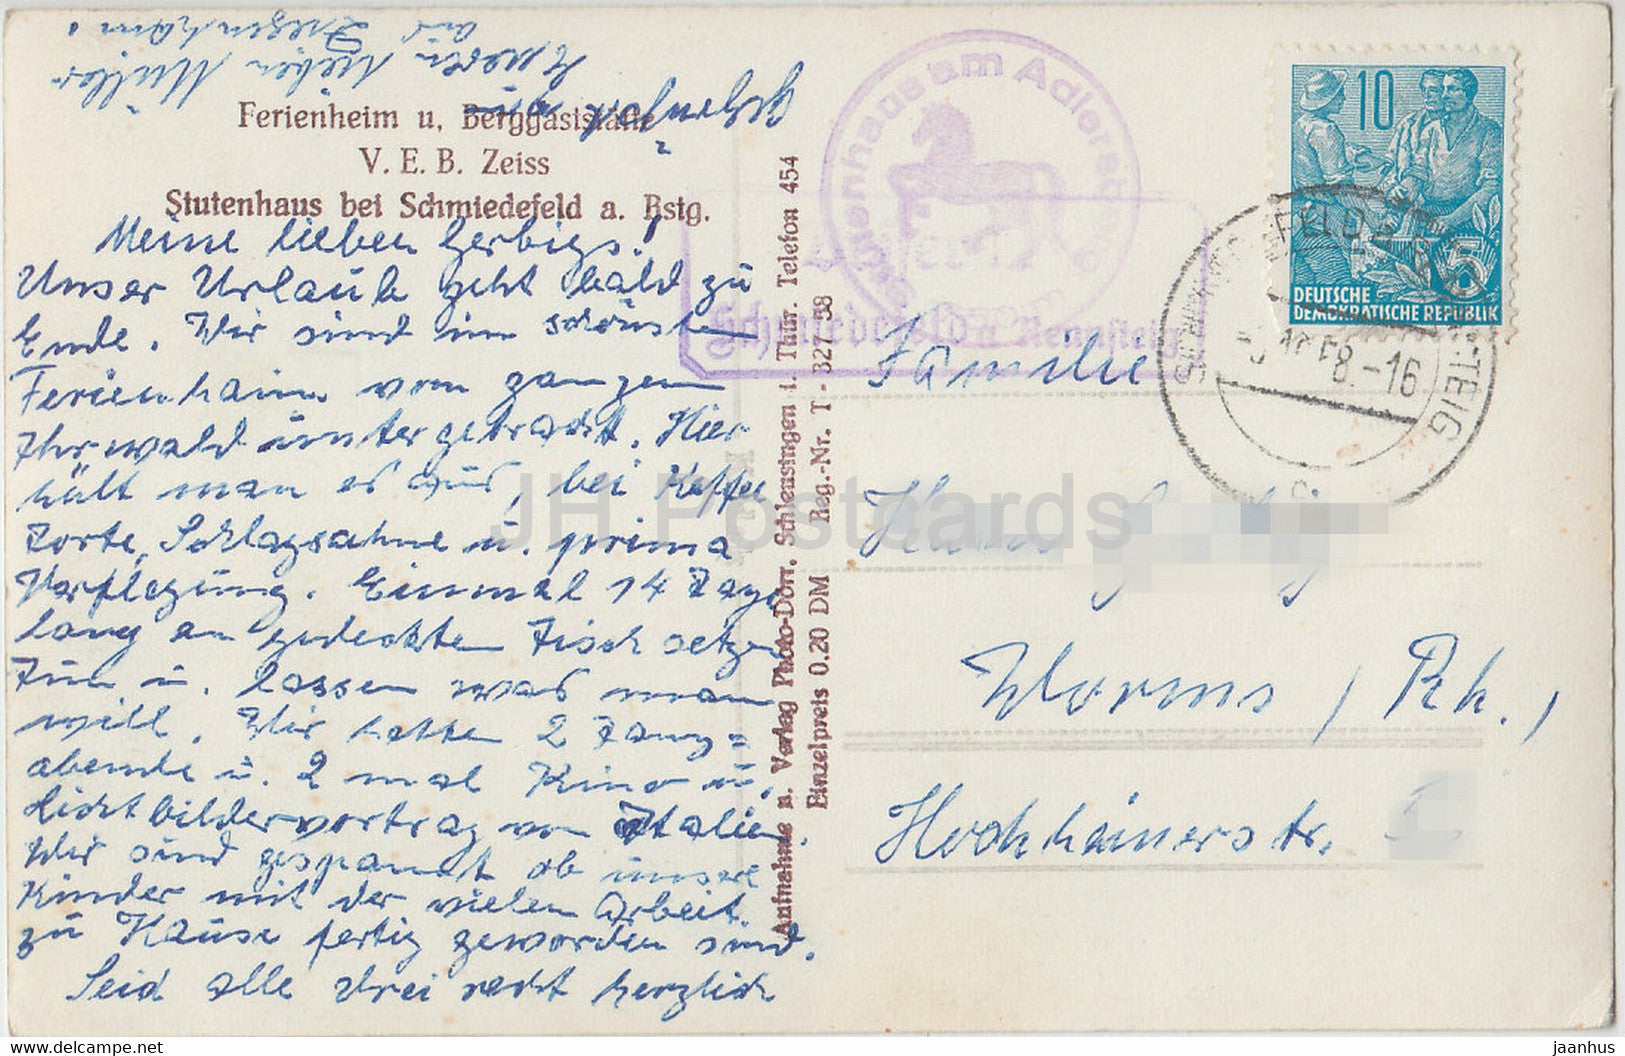 Ferienheim u. Berggaststätte
V. E. B. Zeiss
Stutenhaus bei Schmiedefeld a. Rstg.
Meine lieben Gerbigs!
Unser Urlaub geht bald zu
Ende. Wir sind im schönsten
Ferienhaim vom ganzen
Thrwald untergebracht. Hier
hält man es aus, bei Kaffee
Torte, Schlagsahne u. prima
Verpflegung. Einmal 14 Tage
lang an gedeckten Tisch setzen
zun u. lassen was man
will. Wir hatten 2 Tanz=
abende u. 2 mal Kino u.
Lichtbildervortrag von Italien.
Wir sind gespannt ob unsere
Kinder mit der vielen Arbeit
zu Hause fertig geworden sind.
Seid alle drei recht herzlich
von
Eueren lieben Müller
aus
Aufnahme u. Verlag Photo-Dörr, Schleusingen i. Thür. Telefon 454
Einzelpreis 0.20 DM Reg.-Nr. T - 327 58
Stutenhaus am Adlersb
Schmiedefeld a Rennsteig
10
5
DEUTSCHE
DEMOKRATISCHE REPUBLIK
8.-16
Familie
Worms / Rh.,
Hochheimerstr.
JH Postcards
www.delcampe.net
jaanhus